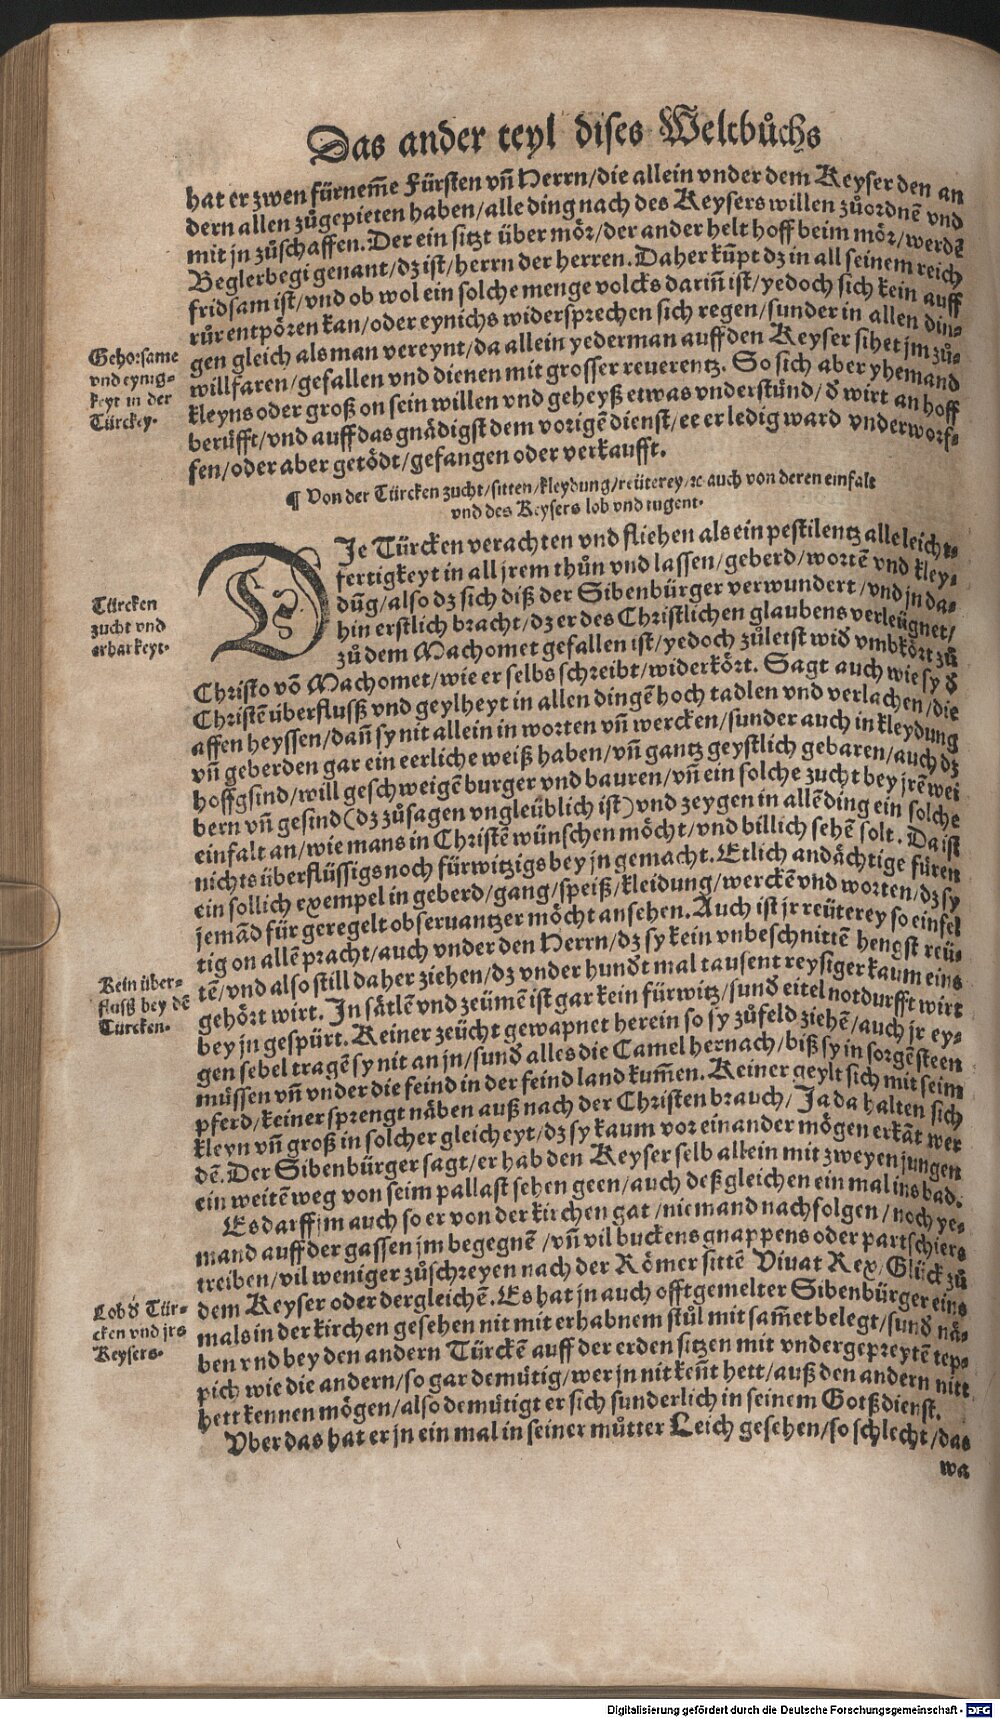 Das ander teyl dises Weltbůchs
hat er zwen fürnem̃e Fürsten vñ Herrn/die allein vnder dem Keyser den an
dern allen zůgepieten haben/alle ding nach des Keysers willen zůordnẽ vnd
mit jn zůschaffen. Der ein sitzt über mör/der ander helt hoff beim mör/werdẽ
Beglerbegi genant/dz ist/herrn der herren. Daher kũpt dz in all seinem reich
fridsam ist/vnd ob wol ein solche menge volcks dariñ ist/yedoch sich kein auff
růr entpören kan/oder eynichs widersprechen sich regen/sunder in allen din-
gen gleich als man vereynt/da allein yederman auff den Keyser sihet jm zů-
willfaren/gefallen vnd dienen mit grosser reuerentz. So sich aber yhemand
kleyns oder groß on sein willen vnd geheyß etwas vnderstünd/đ wirt an hoff
berüfft/vnd auff das gnädigst dem vorigẽ dienst/ee er ledig ward vnderworf-
fen/oder aber getödt/gefangen oder verkaufft.
Gehorsame
vnd eynig-
keyt in der
Türckey.
¶ Von der Türcken zucht/sitten/kleydung/reüterey/ꝛc auch von deren einfalt
vnd des Keysers lob vnd tugent.
DJe Türcken verachten vnd fliehen als ein pestilentz alle leicht-
fertigkeyt in all jrem thůn vnd lassen/geberd/wortẽ vnd kley-
dũg/also dz sich diß der Sibenbürger verwundert/vnd jn da-
hin erstlich bracht/dz er des Christlichen glaubens verleügnet/
zů dem Machomet gefallen ist/yedoch zůletst wiđ vmbkört zů
Christo võ Machomet/wie er selbs schreibt/widerkört. Sagt auch wie sy đ
Christẽ überflusß vnd geylheyt in allen dingẽ hoch tadlen vnd verlachen/die
affen heyssen/dañ sy nit allein in worten vñ wercken/sunder auch in kleydung
vñ geberden gar ein eerliche weiß haben/vñ gantz geystlich gebaren/auch dz
hoffgsind/will geschweigẽ burger vnd bauren/vñ ein solche zucht bey jrẽ wei
bern vñ gesind (dz zůsagen vngleüblich ist) vnd zeygen in allẽ ding ein solche
einfalt an/wie mans in Christẽ wünschen möcht/vnd billich sehẽ solt. Da ist
nichts überflüssigs noch fürwitzigs bey jn gemacht. Etlich andächtige füren
ein sollich exempel in geberd/gang/speiß/kleidung/werckẽ vnd worten/dz sy
jemãd für geregelt obseruantzer möcht ansehen. Auch ist jr reüterey so einfel
tig on allẽ pracht/auch vnder den Herrn/dz sy kein vnbeschnittẽ hengst reü-
tẽ/vnd also still daher ziehen/dz vnder hundt mal tausent reysiger kaum eins
gehört wirt. Jn sätlẽ vnd zeümẽ ist gar kein fürwitz/sunđ eitel notdurfft wirt
bey jn gespürt. Keiner zeücht gewapnet herein so sy zůfeld ziehẽ/auch jr ey-
gen sebel tragẽ sy nit an jn/sunđ alles die Camel hernach/biß sy in sorgẽ steen
müssen vñ vnder die feind in der feind land kum̃en. Keiner geylt sich mit seim
pferd/keiner sprengt näben auß nach der Christen brauch/ Ja da halten sich
kleyn vñ groß in solcher gleicheyt/dz sy kaum vor einander mögen erkãt wer
dẽ. Der Sibenbürger sagt/er hab den Keyser selb allein mit zweyen jungen
ein weitẽ weg von seim pallast sehen geen/auch deßgleichen ein mal ins bad.
Türcken
zucht vnd
erbarkeyt.
Kein über-
flusß bey dẽ
Türcken.
Es darff jm auch so er von der kirchen gat/niemand nachfolgen/noch ye-
mand auff der gassen jm begegnẽ/vñ vil buckens gnappens oder partschiers
treiben/vil weniger zůschreyen nach der Römer sittẽ Viuat Rex/Glück zů
dem Keyser oder dergleichẽ. Es hat jn auch offtgemelter Sibenbürger eins
mals in der kirchen gesehen nit mit erhabnem stůl mit sam̃et belegt/sunđ nä-
ben vnd bey den andern Türckẽ auff der erden sitzen mit vndergepreytẽ tep-
pich wie die andern/so gar demütig/wer jn nit keñt hett/auß den andern nitt
hett kennen mögen/also demütigt er sich sunderlich in seinem Gotßdienst.
Lob đ Tür-
cken vnd jrs
Keysers.
Vber das hat er jn ein mal in seiner můtter Leich gesehen/so schlecht/das
wa
Digitalisierung gefördert durch die Deutsche Forschungsgemeinschaft - DFG